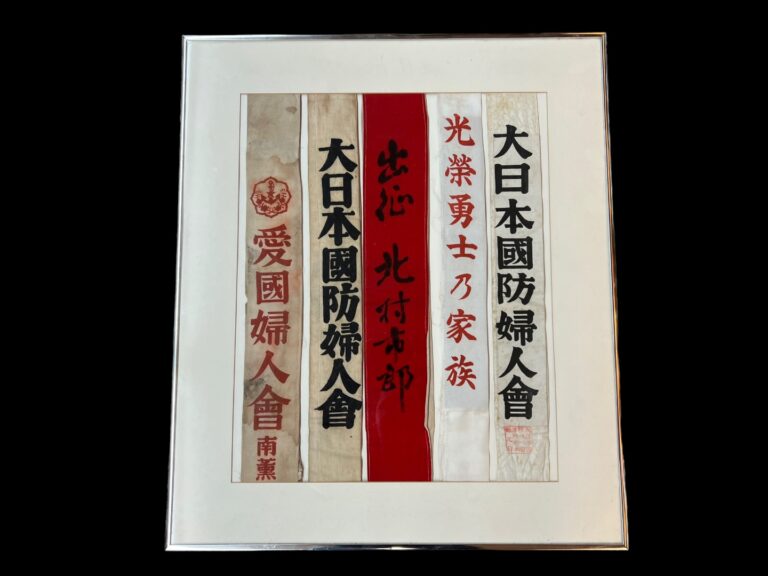 大日本國防婦人會
光榮勇士乃家族
出征 北村市郎
大日本國防婦人會
愛國婦人會
南薫